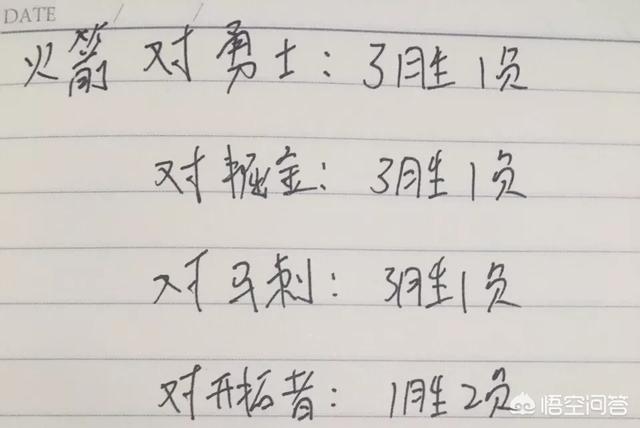 DATE / /
火箭 对 勇士：3胜1负
对掘金：3胜1负
对马刺：3胜1负
对开拓者：1胜2负
悟空问答